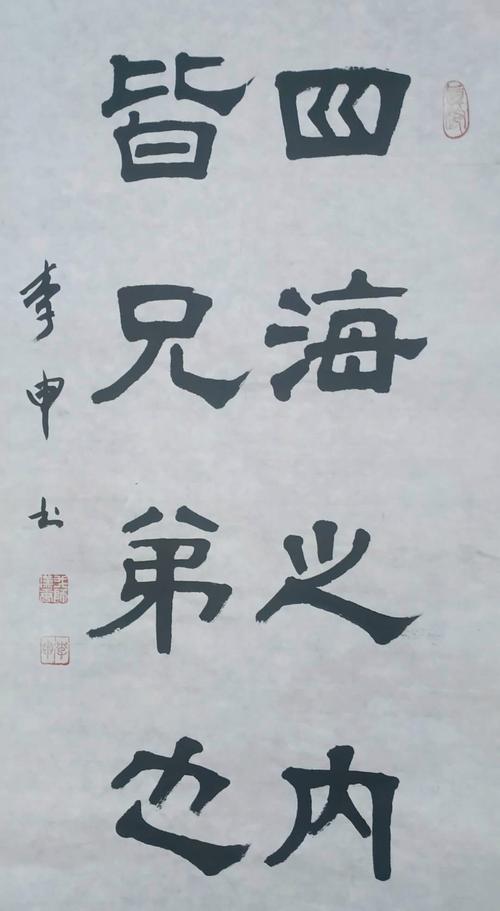 四海之内
皆兄弟也
李申书